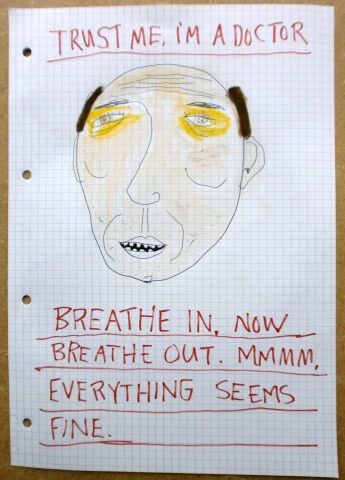 TRUST ME, I'M A DOCTOR
BREATHE IN, NOW
BREATHE OUT. MMMM,
EVERYTHING SEEMS
FINE.